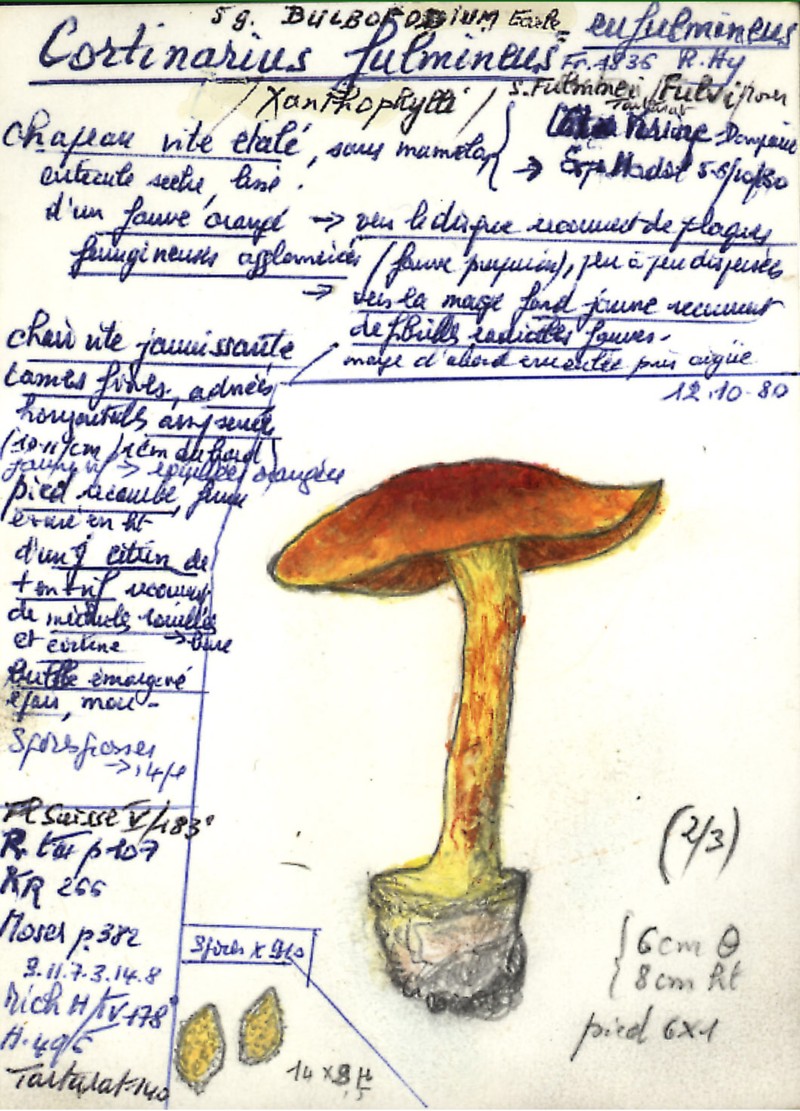 Sg. BULBOPODIUM Earle =
eufulmineus
Cortinarius fulmineus Fr. 1836 R. Hy
/ Xanthophylli / S. Fulminei / Fulvi
chapeau vite étalé, sans mamelon
5-6/10/80
cuticule sèche, lisse.
d'un fauve orangé → vers le disque recouvert de plaques
ferrugineuses agglomérées (fauve pourpre), peu à peu dispersées
→ vers la marge fond jaune recouvert
de fibrilles radiales fauves.
marge d'abord enroulée puis aigüe
12.10.80
chair vite jaunissante
Lames fines, adnées
horizontales assez serrées
(10-11/cm) 1cm du bord
jaune vif → orangées
pied recourbé,
évasé en ht
d'un j citrin de
+ en + vif recouvert
de méchules rouillées
et cortine
bulbe émarginé
épais, mou
Spores grosses
→ 14 µ
Fl Suisse V/183
p 107
KR 266
Moser p. 382
9.11.7.3.14.8
Rich H/ IV 178
H. 496
Tartarat 140
Spores x 910
14 x 8 µ
(2/3)
6 cm Θ
8 cm ht
pied 6x1